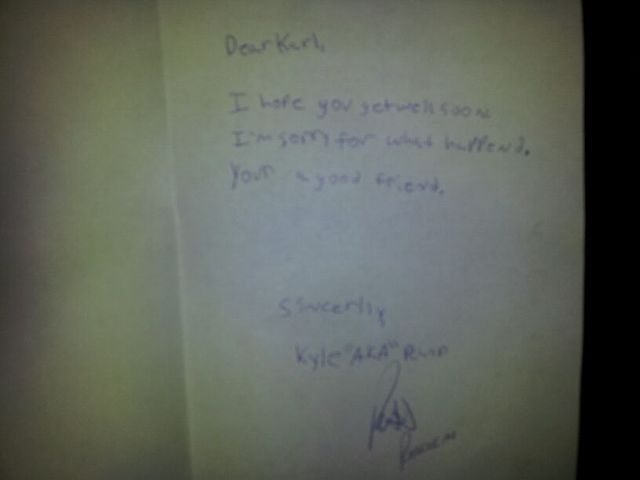 Dear Karl,
I hope you get well soon
I'm sorry for what happend.
Your a good friend.
Sincerly,
Kyle "AKA"